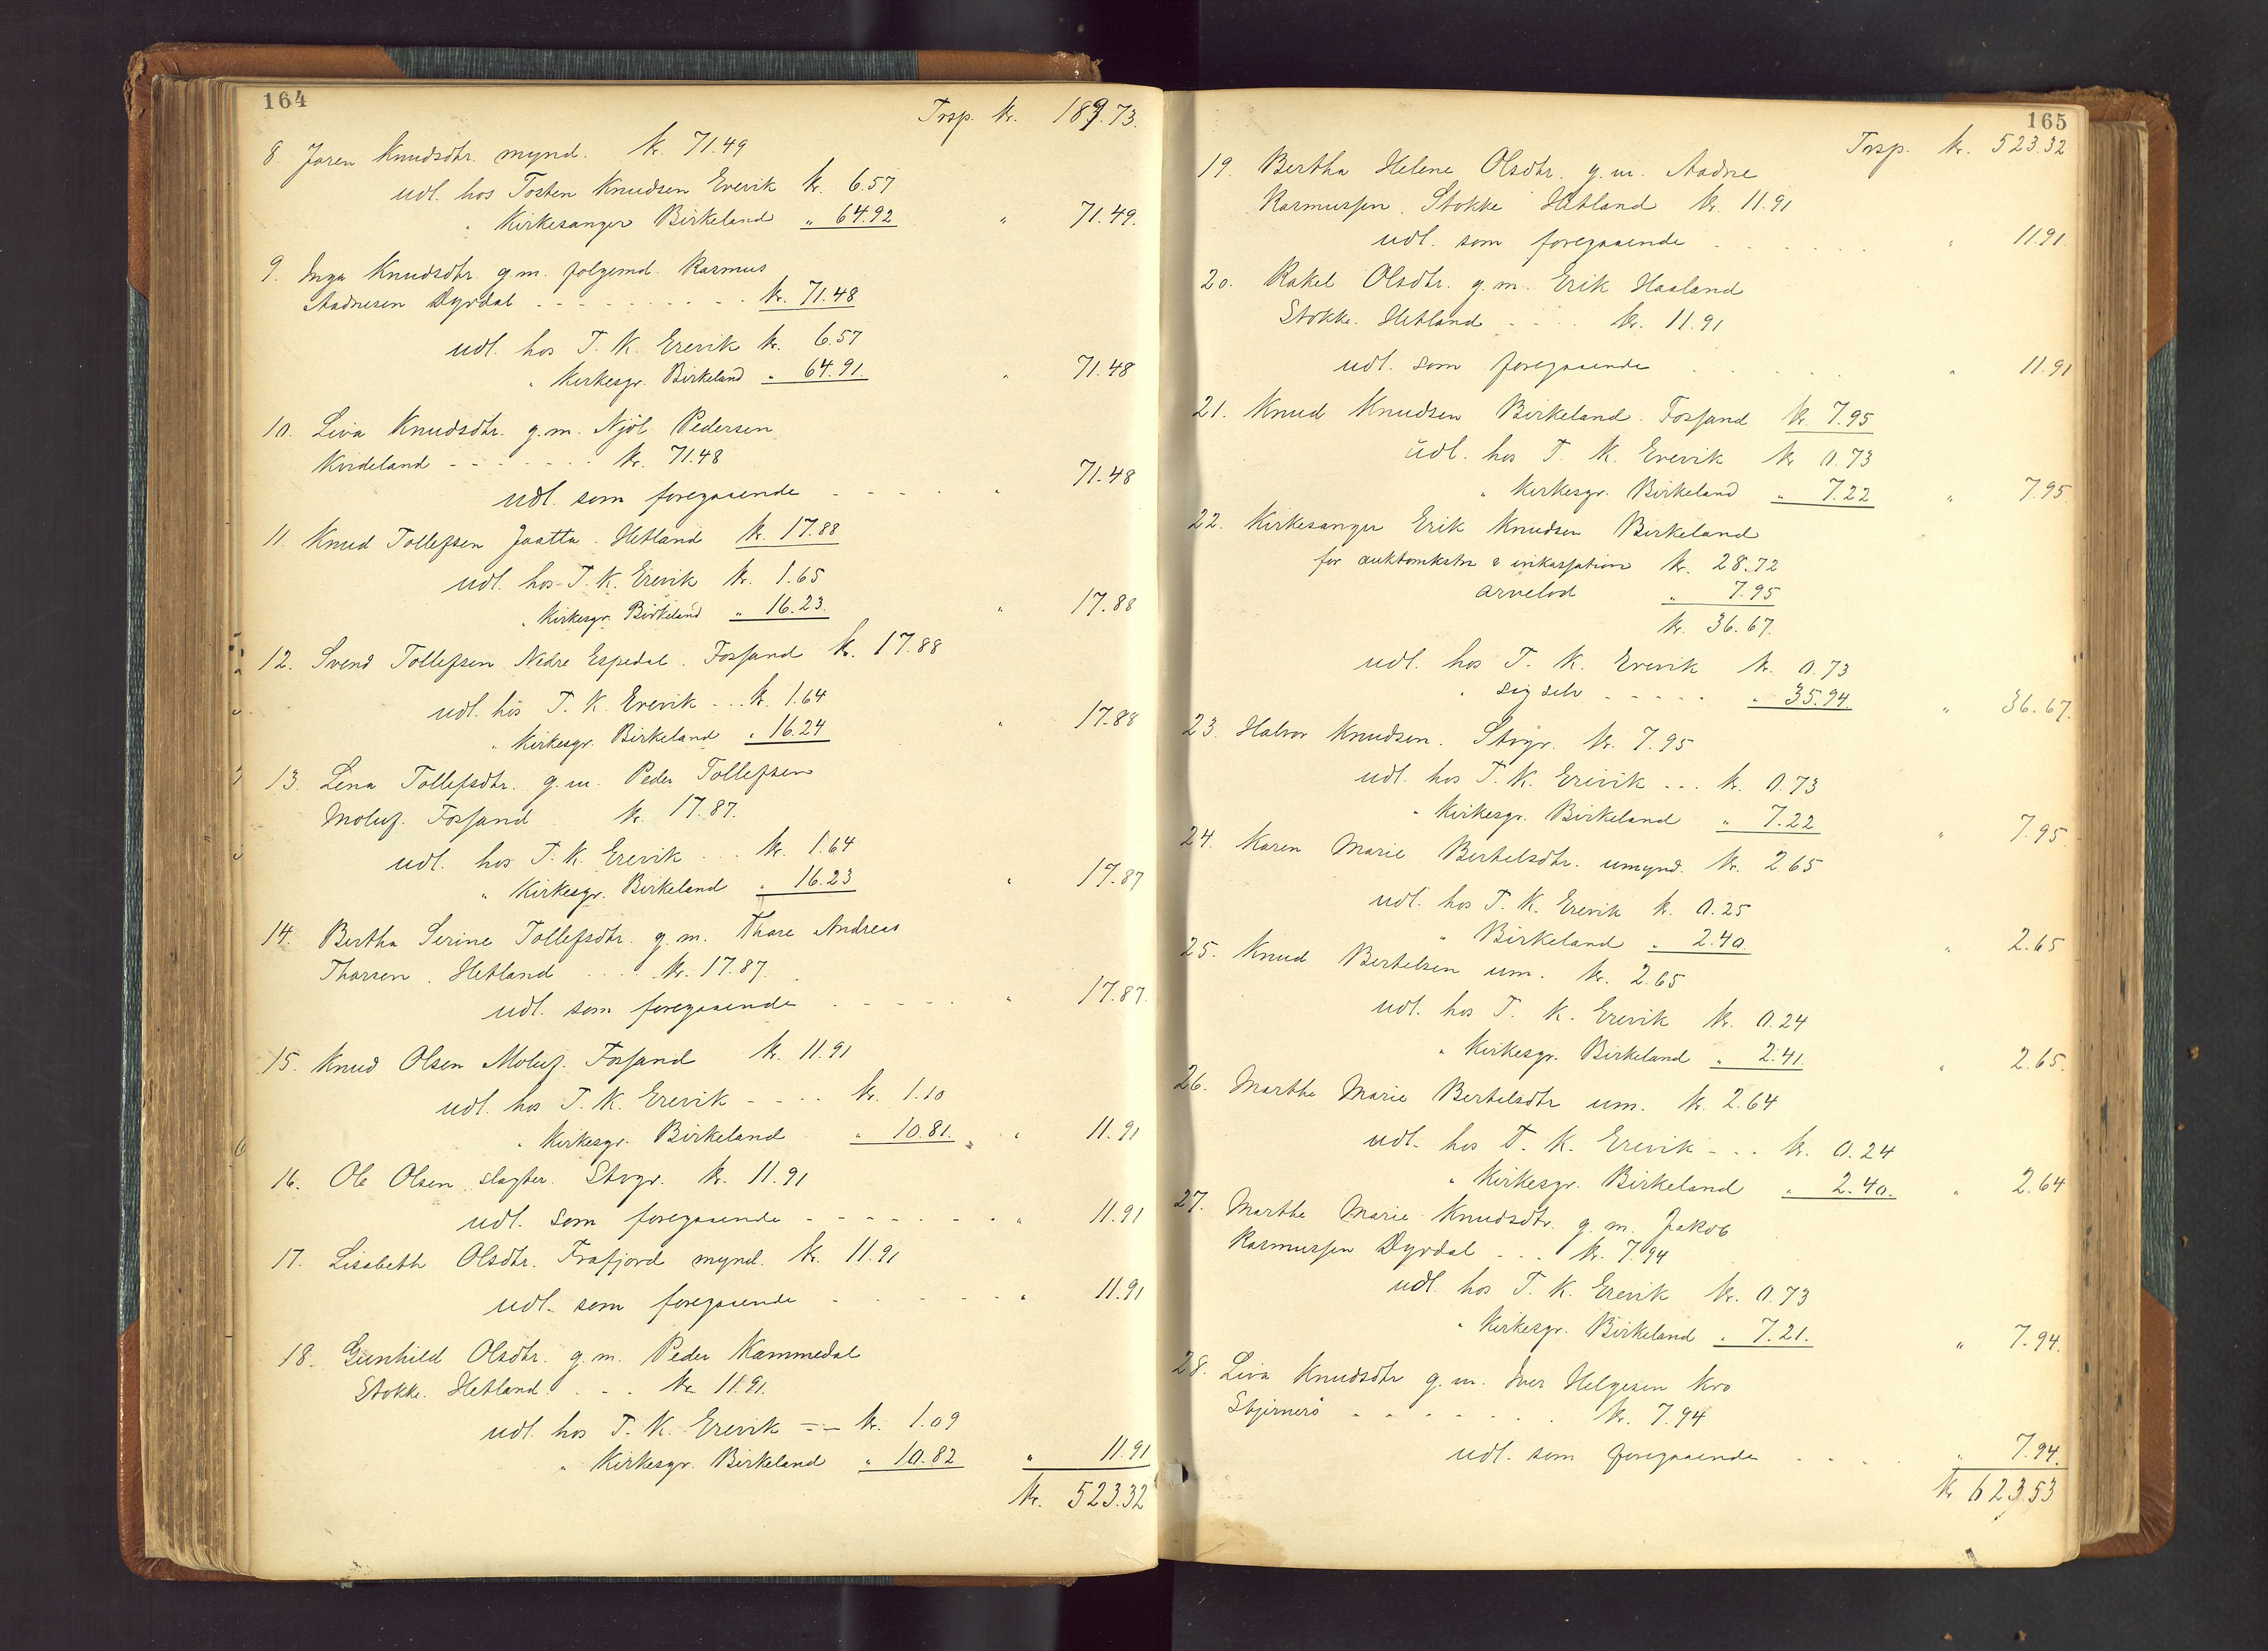 164
Trsp. Kr. 189.73.
8. Joren Knudsdtr. mynd. Kr. 71.49
udl. hos Tosten Knudsen Erevik Kr. 6.57
" Kirkesanger Birkeland " 64.92 " 71.49.
9. Inga Knudsdtr. g.m. følgemd. Rasmus
Aadnesen Dyrdal - - - - - - - - - Kr. 71.48
udl. hos T. K. Erevik Kr. 6.57
" Kirkesgr. Birkeland " 64.91. " 71.48
10. Liva Knudsdtr. g.m. Njöl Pedersen
Kvideland - - - - - - - Kr. 71.48
udl. som foregaaende - - - - " 71.48
11. Knud Tollefsen Jaatta. Hetland Kr. 17.88
udl. hos T. K. Erevik Kr. 1.65
" Kirkesgr. Birkeland " 16.23. " 17.88
12. Svend Tollefsen Nedre Espedal. Fossand Kr. 17.88
udl. hos T. K. Erevik ... Kr. 1.64
" Kirkesgr. Birkeland " 16.24 " 17.88
13. Lena Tollefsdtr. g.m. Peder Tollefsen
Moluf. Fossand Kr. 17.87.
udl. hos T. K. Erevik ... Kr. 1.64
" Kirkesgr. Birkeland " 16.23 " 17.87
14. Bertha Serine Tollefsdtr. g.m. Thore Andreas
Thorsen. Hetland .... Kr. 17.87.
udl. som foregaaende - - - - - " 17.87.
15. Knud Olsen Moluf. Fossand Kr. 11.91
udl. hos T. K. Erevik - - - - Kr. 1.10
" Kirkesgr. Birkeland " 10.81. " 11.91
16. Ole Olsen slagter. Stvgr. Kr. 11.91
udl. som foregaaende - - - - - - - " 11.91
17. Lisabeth Olsdtr. Frafjord mynd. Kr. 11.91
udl. som foregaaende - - - - - - " 11.91
18. Gunhild Olsdtr. g.m. Peder Kommedal
Stokke. Hetland. . - - Kr. 11.91.
udl. hos T. K. Erevik - - Kr. 1.09
" Kirkesgr. Birkeland " 10.82 " 11.91
Kr. 523.32
165
Trsp. Kr. 523.32
19. Bertha Helene Olsdtr. g.m. Aadne
Rasmussen. Stokke Hetland Kr. 11.91
udl. som foregaaende - - - - - " 11.91
20. Rakel Olsdtr. g.m. Erik Haaland
Stokke. Hetland - - - - Kr. 11.91
udl. som foregaaende - - - - " 11.91
21. Knud Knudsen Birkeland. Fossand Kr. 7.95
udl. hos T. K. Erevik Kr 0.73
" Kirkesgr. Birkeland " 7.22 " 7.95
22. Kirkesanger Erik Knudsen Birkeland
for auktionkstn & inkassation Kr. 28.72
arvelod " 7.95
Kr. 36.67.
udl. hos T. K. Erevik Kr. 0.73
" sig selv - - - - - " 35.94. " 36.67.
23. Halvor Knudsen. Stvgr. Kr. 7.95
udl. hos T. K. Erevik ... Kr. 0.73
" Kirkesgr. Birkeland " 7.22 " 7.95
24. Karen Marie Bertelsdtr. umynd. Kr. 2.65
udl. hos T. K. Erevik Kr. 0.25
" Birkeland " 2.40. " 2.65
25. Knud Bertelsen um. Kr. 2.65
udl. hos T. K. Erevik Kr. 0.24
" Kirkesgr. Birkeland " 2.41. " 2.65.
26. Marthe Marie Bertelsdtr um. Kr. 2.64
udl. hos T. K. Erevik - - - Kr. 0.24
" Kirkesgr. Birkeland " 2.40. " 2.64
27. Marthe Marie Knudsdtr. g.m. Jakob
Rasmussen Dyrdal - - - Kr. 7.94
udl. hos T. K. Erevik Kr. 0.73
" Kirkesgr. Birkeland " 7.21. " 7.94.
28. Liva Knudsdtr g.m. Iver Helgesen Kro
Stjernerö - - - - - - - Kr. 7.94
udl. som foregaaende - - - - " 7.94.
Kr 623.53